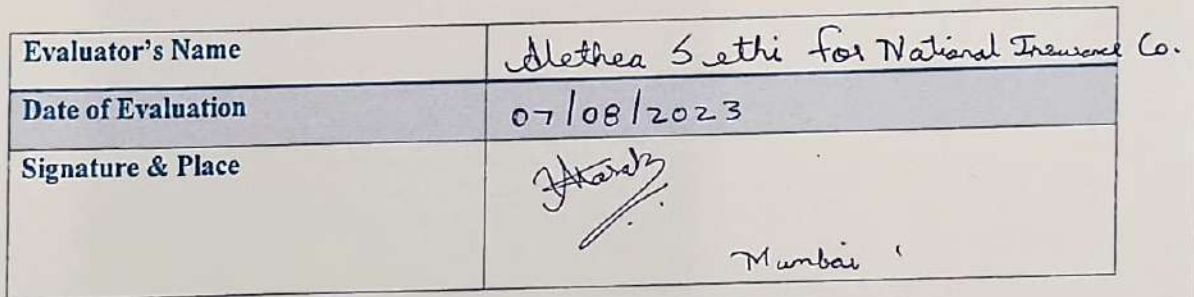 Evaluator's Name Alethea Sethi for National Insurance Co.
Date of Evaluation 07/08/2023
Signature & Place
Mumbai